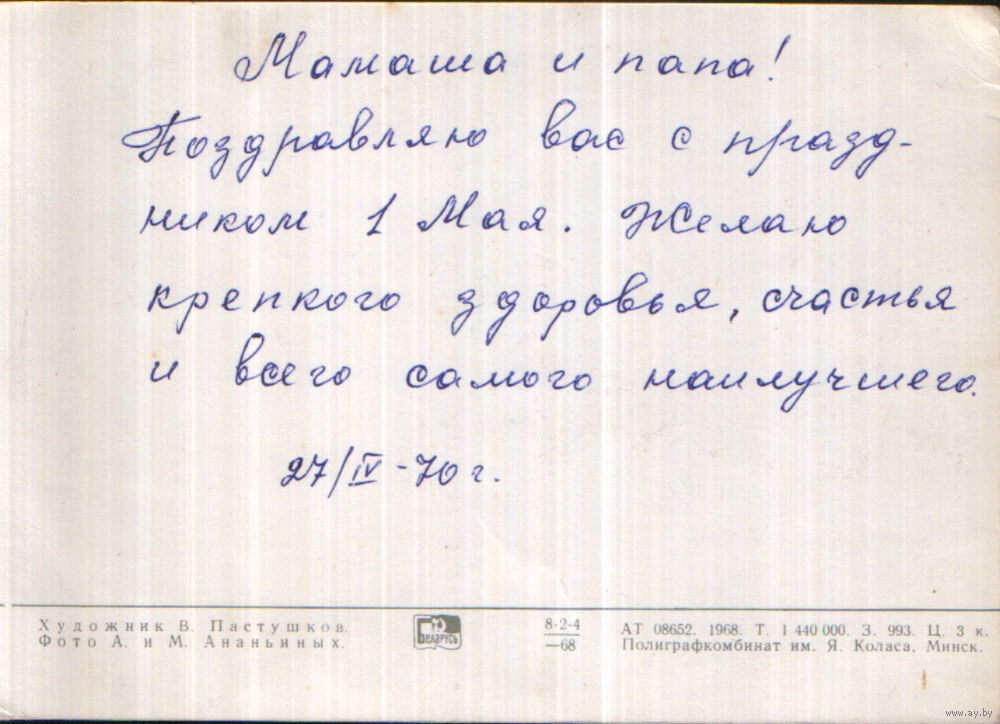 Мамаша и папа!
Поздравляю вас с празд-
ником 1 Мая. Желаю
крепкого здоровья, счастья
и всего самого наилучшего.
27/IV-70 г.
Художник В. Пастушков.
Фото А. и М. Ананьиных.
Беларусь
8-2-4
—68
АТ 08652. 1968. Т. 1 440 000. З. 993. Ц. 3 к.
Полиграфкомбинат им. Я. Коласа, Минск.
www.ay.by